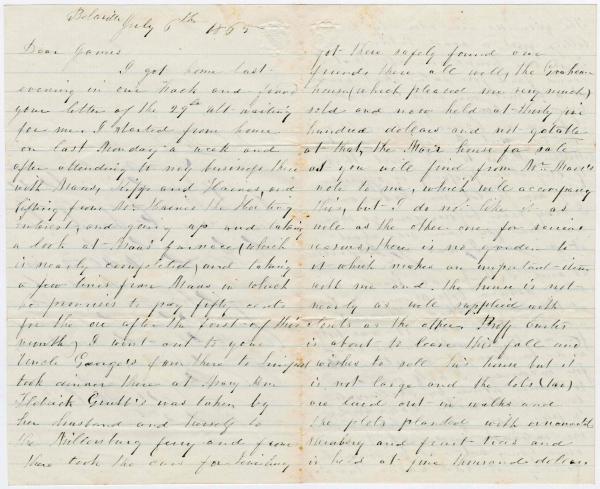 July 6th 1865
Dear James
I got home last
evening in our hack and found
your letter of the 29th ult waiting
for me. I started from home
on last Monday a week and
after attending to my business there
with Haines, and
lifting from Mr Haines the
interest, and going up and taking
a look at furnace (which
is nearly completed) and taking
a few lines from in which
he promises to pay fifty cents
for the ore after the first of this
month, I went out to your
Uncle Georges from there to
took dinner there at Mary Ann
Grubb's was taken by
her husband and herself to
the Millersburg ferry and from
there took the cars for
got there safely found our
friends there all well, the Graham
house (which pleased me very much)
sold and now held at thirty five
hundred dollars and not gotable
at that, the house for sale
as you will find from Mr
note to me, which will accompany
this, but I do not like it as
well as the other one for various
reasons, there is no garden to
it which makes an important item
with me and the house is not
nearly as well supplied with
as the other. Proff
is about to leave this fall and
wishes to sell his house but it
is not large and the lots (two)
are laid out in walks and
the plots planted with ornamental
and fruit trees and
is held at five thousand dollars